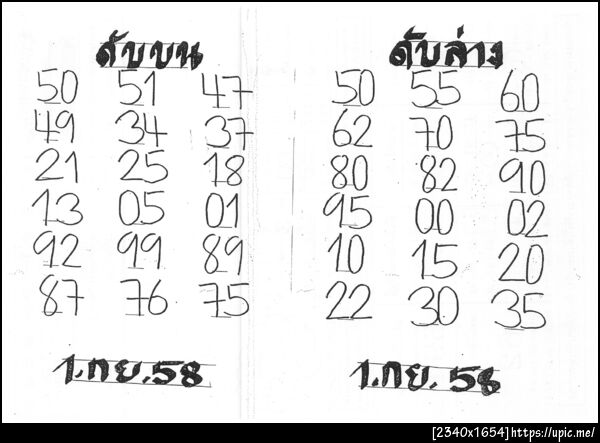 ดับบน
50 51 47
49 34 37
21 25 18
13 05 01
92 99 89
87 76 75
1.กย.58
ดับล่าง
50 55 60
62 70 75
80 82 90
95 00 02
10 15 20
22 30 35
1.กย.58
[2340x1654]https://upic.me/